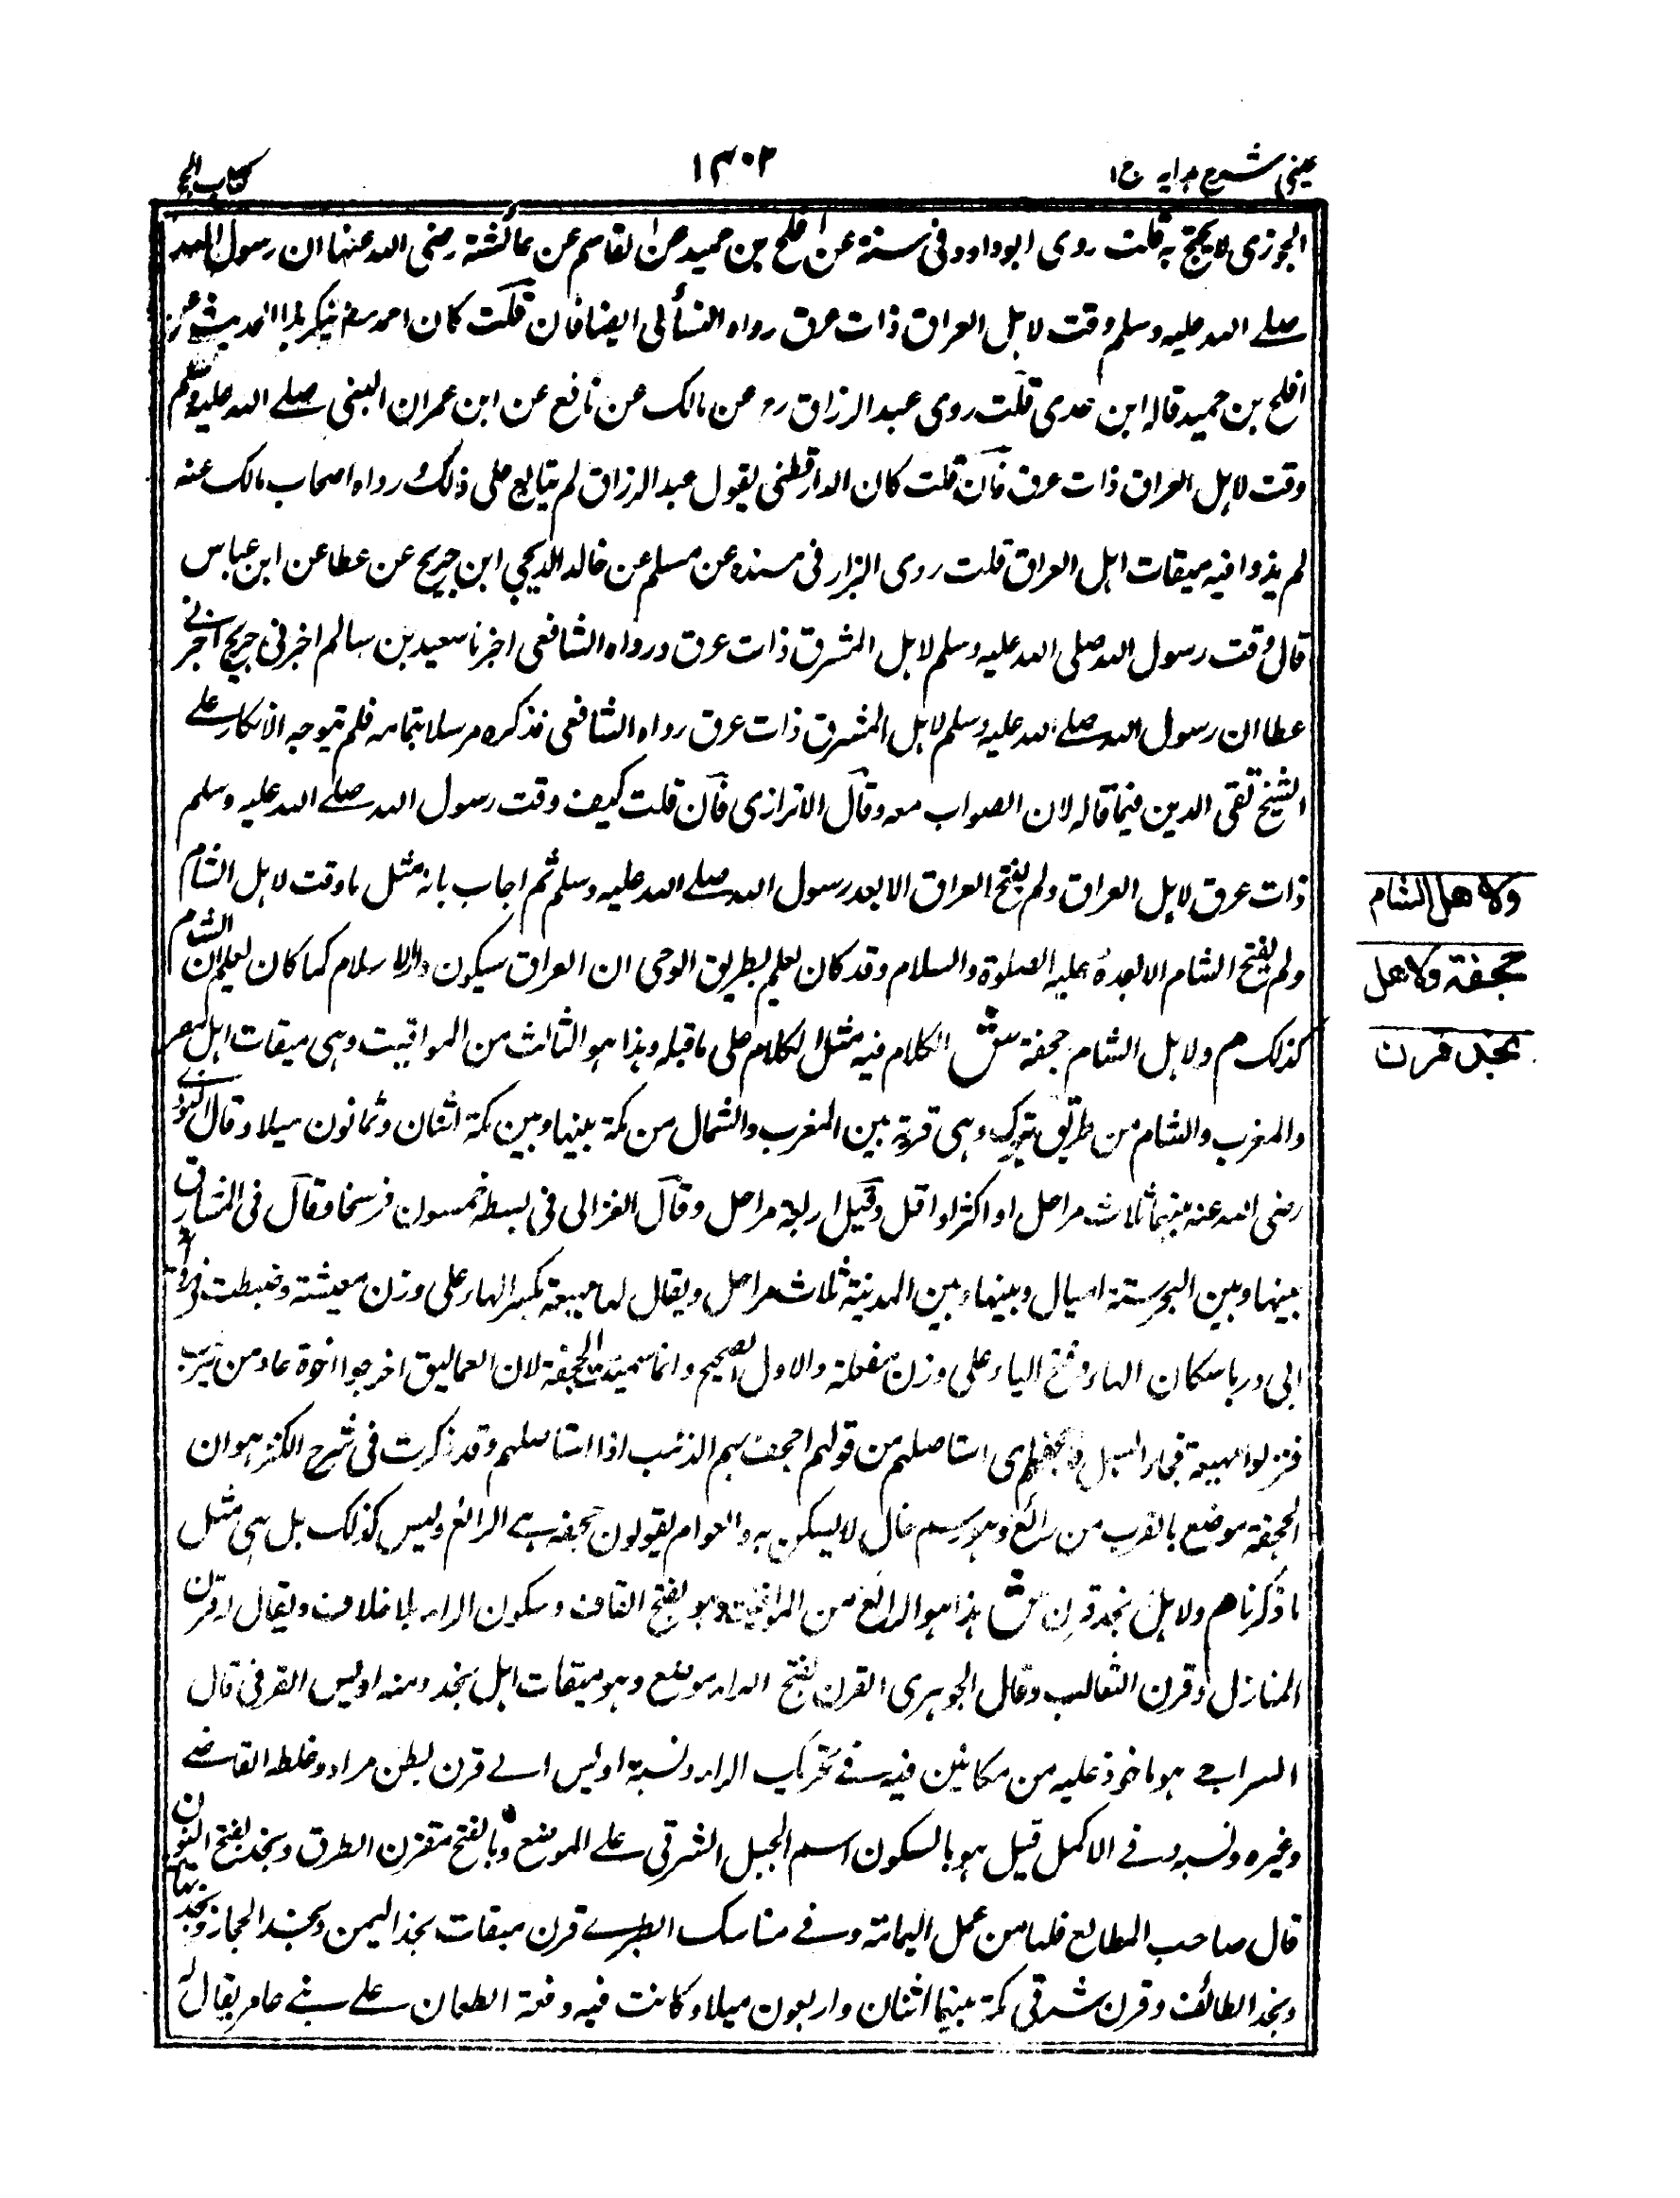 عینی شرح هدایه ج۱
۱۳۰۲
کتاب الحج
الجوزی لا یحتج به قلت روی ابو داود فی سننه عن افلح بن حمید عن القاسم عن عائشة رضی الله عنها ان رسول الله
صلے الله علیه وسلم وقت لاهل العراق ذات عرق رواه النسائی ایضا فان قلت کان احمد ینکر هذا الحدیث
افلح بن حمید قاله ابن عدی قلت روی عبد الرزاق عن مالک عن نافع عن ابن عمر ان النبی صلے الله علیه وسلم
وقت لاهل العراق ذات عرق فان قلت کان الدارقطنی یقول عبد الرزاق لم یتابع علی ذلک و رواه اصحاب مالک عنه
لم یذکروا فیه میقات اهل العراق قلت روی البزار فی مسنده عن مسلم عن خالد ابن جریج عن عطا عن ابن عباس
قال وقت رسول الله صلی الله علیه وسلم لاهل المشرق ذات عرق ورواه الشافعی اخبرنا سعید بن سالم اخبرنی جریج اخبرنے
عطا ان رسول الله صلے الله علیه وسلم لاهل المشرق ذات عرق رواه الشافعی فذکره مرسلا بتمامه فلم یتوجه الانکار علے
الشیخ تقی الدین فیما قاله لان الصواب معه وقال الاترازی فان قلت کیف وقت رسول الله صلے الله علیه وسلم
ذات عرق لاهل العراق ولم یفتح العراق الا بعد رسول الله صلے الله علیه وسلم ثم اجاب بانه مثل ما وقت لاهل الشام
ولم یفتح الشام الا بعده علیه الصلوة والسلام وقد کان یعلم بطریق الوحی ان العراق سیکون دار الاسلام کما کان یعلم ان الشام
کذلک م ولاهل الشام جحفة ش الکلام فیه مثل الکلام علی ما قبله وهذا هو الثالث من المواقیت وهی میقات اهل مصر
والمغرب والشام من طریق تبوک وهی قریة بین المغرب والشمال من مکة بینها وبین مکة اثنان وثمانون میلا وقال النووے
رضی الله عنه بینهما ثلاث مراحل او اکثر او اقل وقیل اربعة مراحل وقال الغزالی فی بسطه خمسون فرسخا وقال فی المشارق
بینها وبین البحر ستة امیال وبینها وبین المدینة ثلاث مراحل ویقال لها مهیعة بکسر الهاء علی وزن معیشة وضبطت
ابی ذر باسکان الهاء وفتح الیاء علی وزن مفعلة والاول الصحیح وانما سمیت الجحفة لان العمالیق اخرجوا اخوة عاد من یثرب
فنزلوا مهیعة فجاء السیل ای استاصلهم من قولهم اجحف بهم الذئب اذا استاصلهم وقد ذکرت فی شرح الکنز هو ان
الجحفة موضع بالقرب من رائغ وهو رسم خال لا یسکن به والعوام یقولون جحفه هے الرائغ ولیس کذلک بل هی مثل
ما ذکرنا م ولاهل نجد قرن ش هذا هو الرابع من المواقیت وهو بفتح القاف وسکون الراء بلا خلاف ویقال له قرن
المنازل وقرن الثعالب وقال الجوهری القرن بفتح الراء موضع وهو میقات اهل نجد ومنه اویس القرنی قال
السراجے هو ماخوذ علیه من مکانین فیه فے تحریک الراء ونسبة اویس الے قرن بطن مراد وغلطه القاضے
وغیره ونسبه وفے الاکمل قیل هو بالسکون اسم الجبل الشرقی علے الموضع وبالفتح مفترق الطرق ونجد بفتح النون
قال صاحب المطالع من عمل الیمامة وفے مناسک الطبرے قرن میقات نجد الیمن ونجد الحجاز ونجد تهامة
ونجد الطائف وقرن شرقی مکة بینهما اثنان واربعون میلا وکانت فیه وقعة الطعان علے بنے عامر یقال له
ولاهل الشام
جحفة ولاهل
نجد قرن